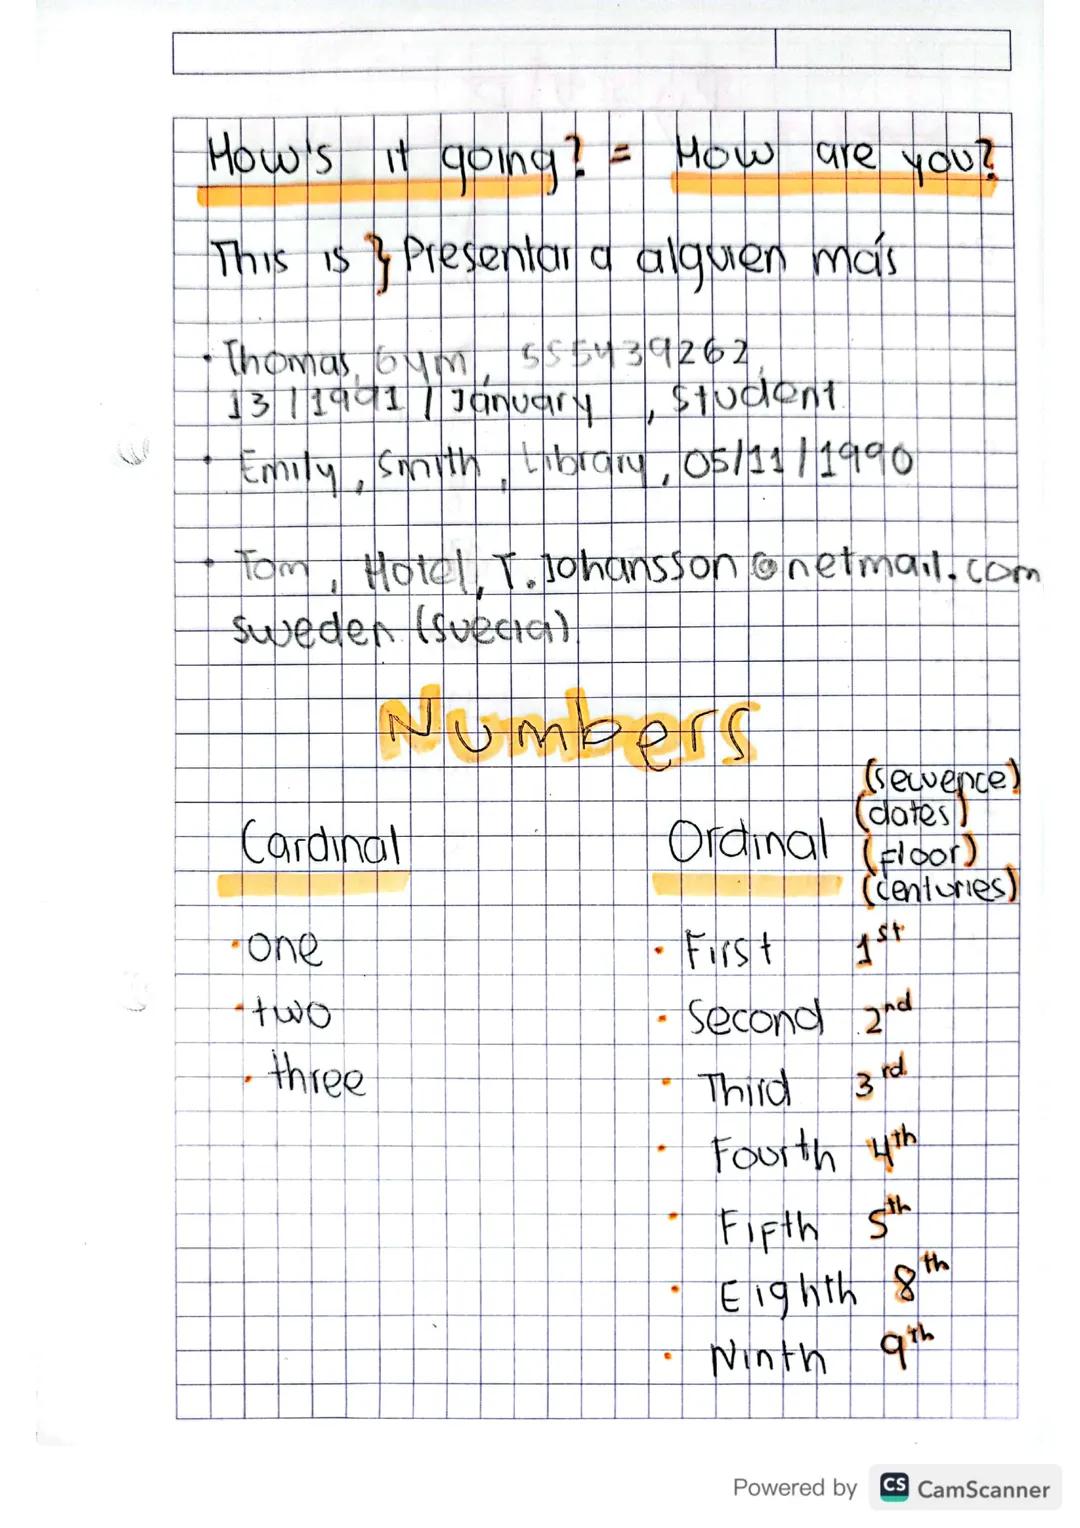 How's it going? = How are you?
This is } Presentar a alguien más
• Thomas, Gym, 555439262,
13/1991/January, student
• Emily, Smith, Library, 05/11/1990
• Tom, Hotel, T.Johansson@netmail.com
sweden (suecia)
Numbers
Cardinal
• one
• two
• three
Ordinal
(secuence)
(dates)
(floor)
(centuries)
• First 1st
• Second 2nd
• Third 3rd
• Fourth 4th
• Fifth 5th
• Eighth 8th
• Ninth 9th
Powered by CS CamScanner